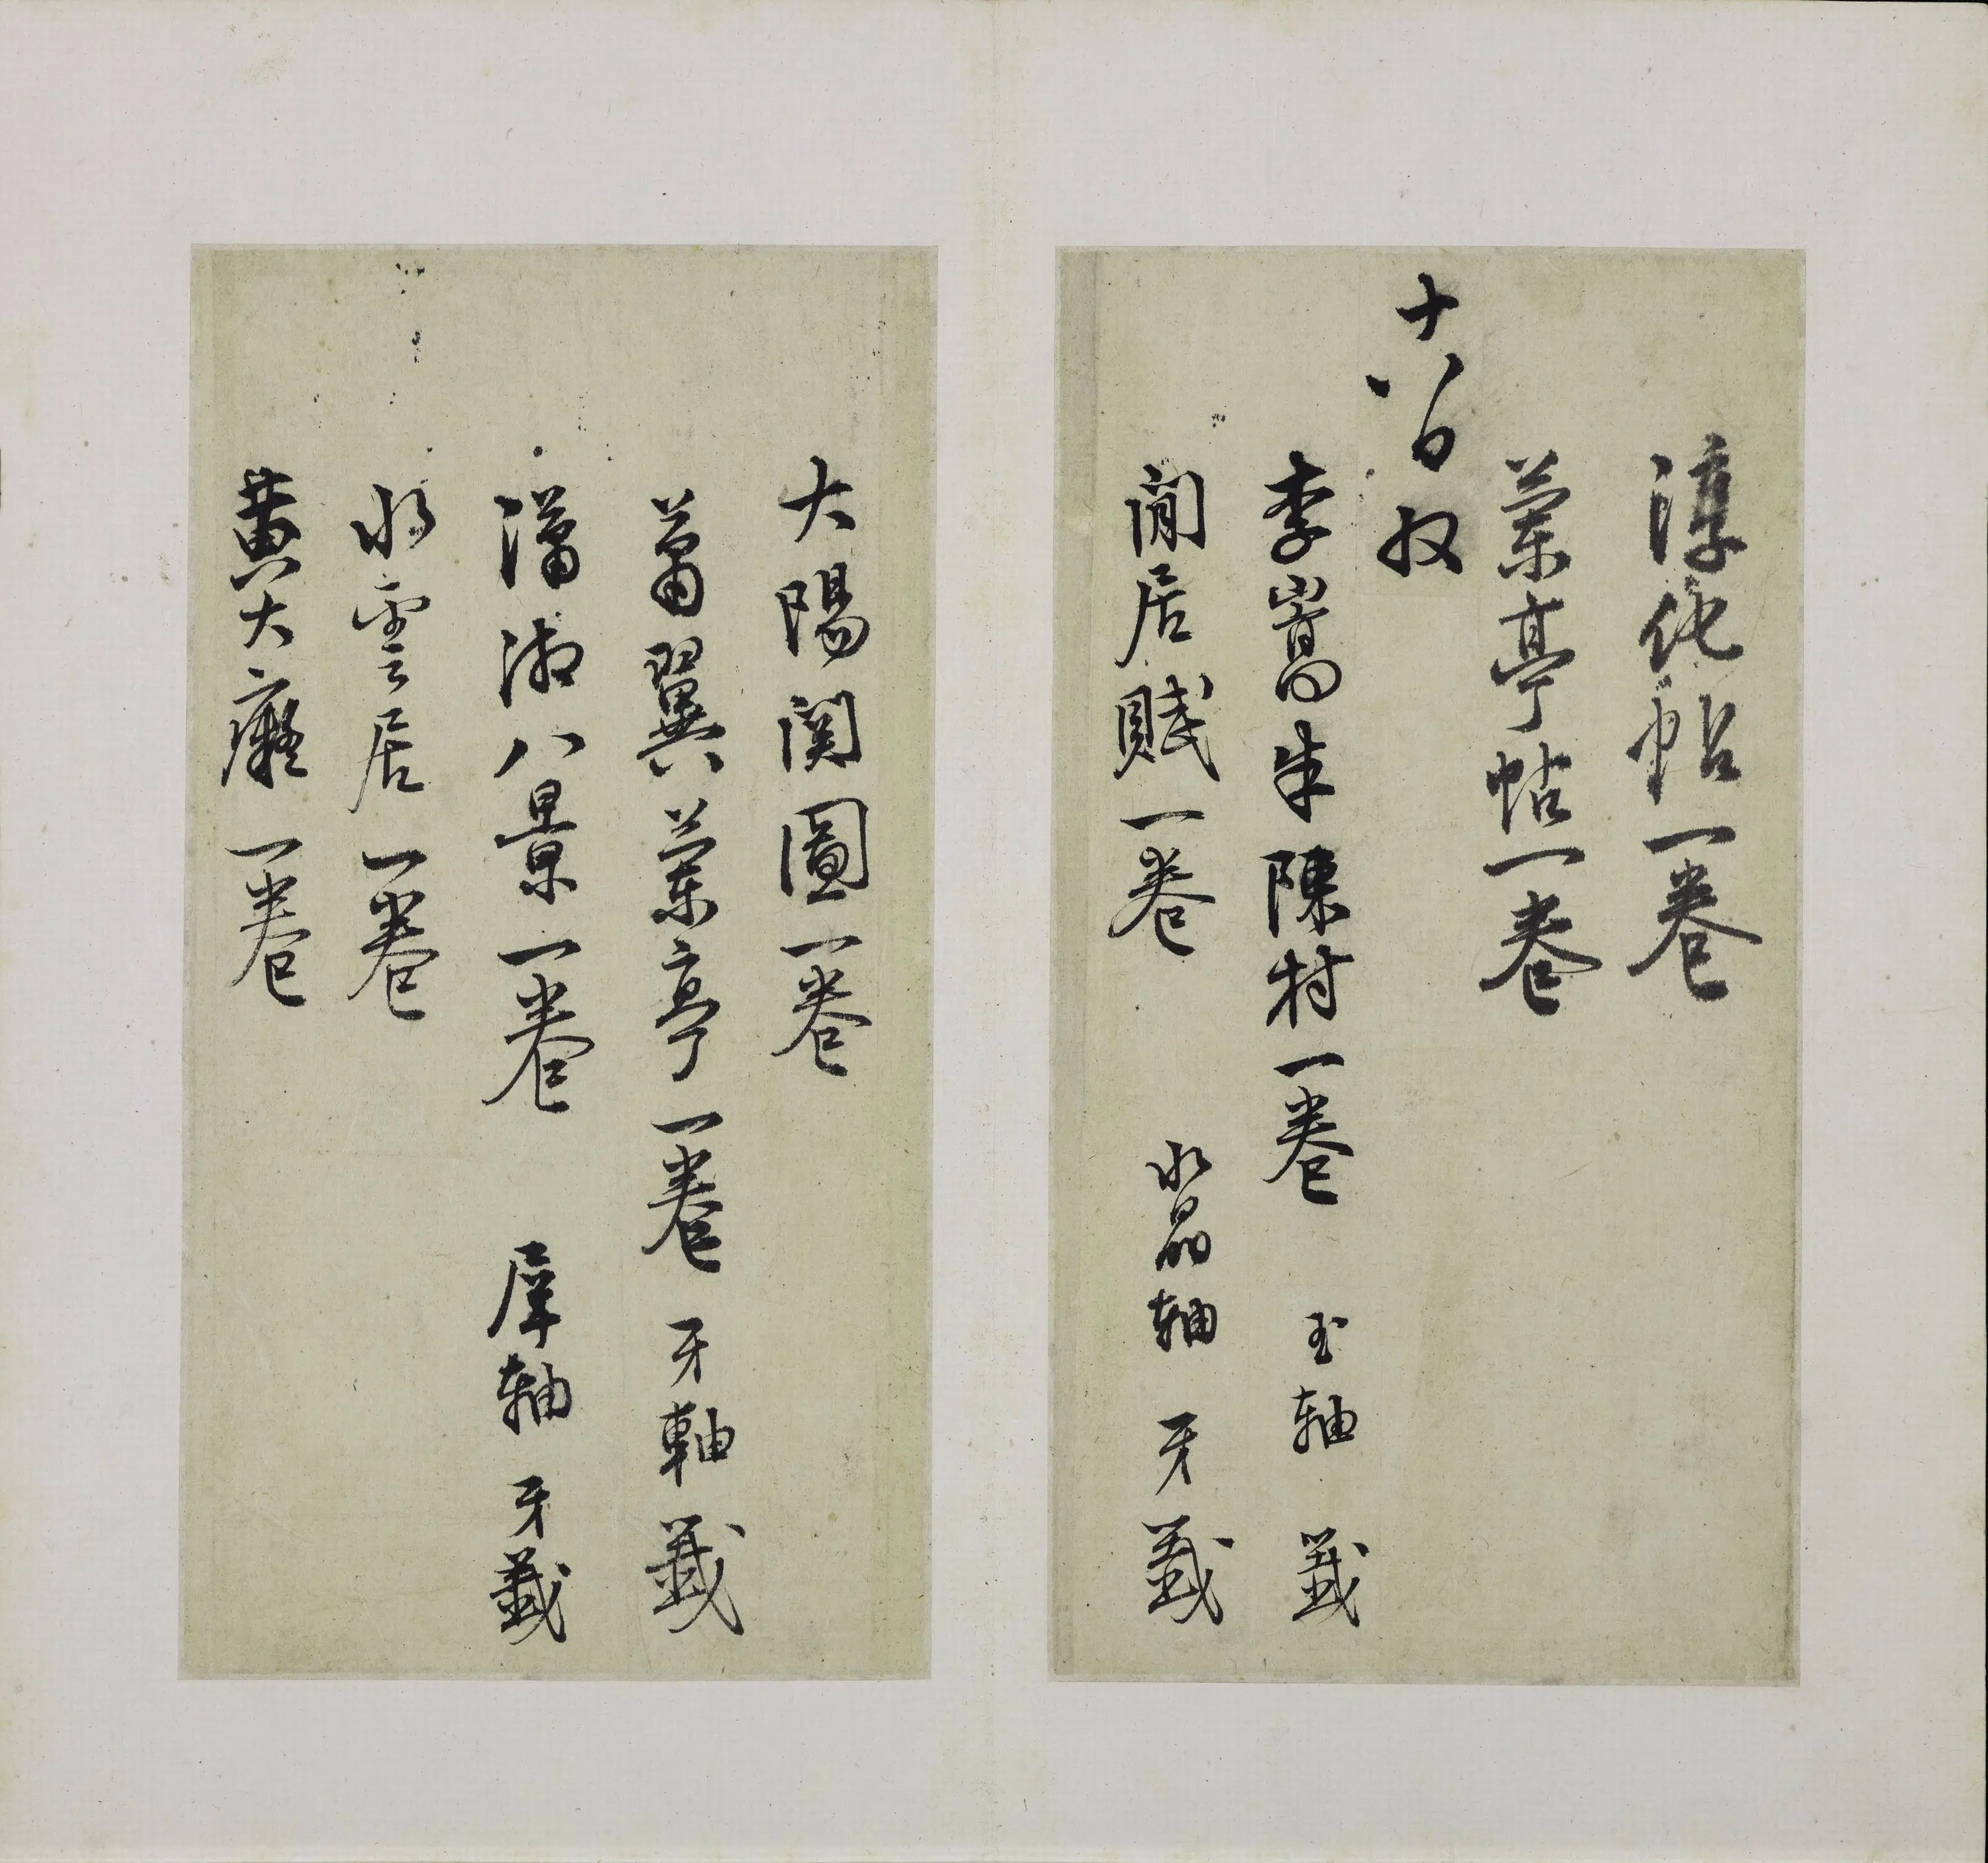 淳化帖一卷
蘭亭帖一卷
十八日收
李嵩朱陳村一卷 玉軸 籤
閒居賦一卷 水晶軸 牙籤
大陽関圖一卷
蕭翼蘭亭一卷 牙軸 籤
瀟湘八景一卷 犀軸 牙籤
水雲居一卷
黃大癡一卷